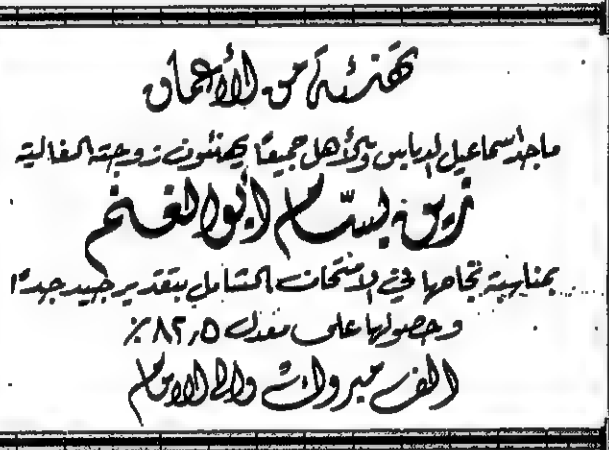 تهنئة من الأعماق
ماجد اسماعيل الدباس والأهل جميعًا يهنئون زوجته الغالية
نرمين بسّام أبو الغنم
بمناسبة نجاحها في الامتحان الشامل بتقدير جيد جدًا
وحصولها على معدل ٨٢,٥٪
ألف مبروك وإلى الأمام